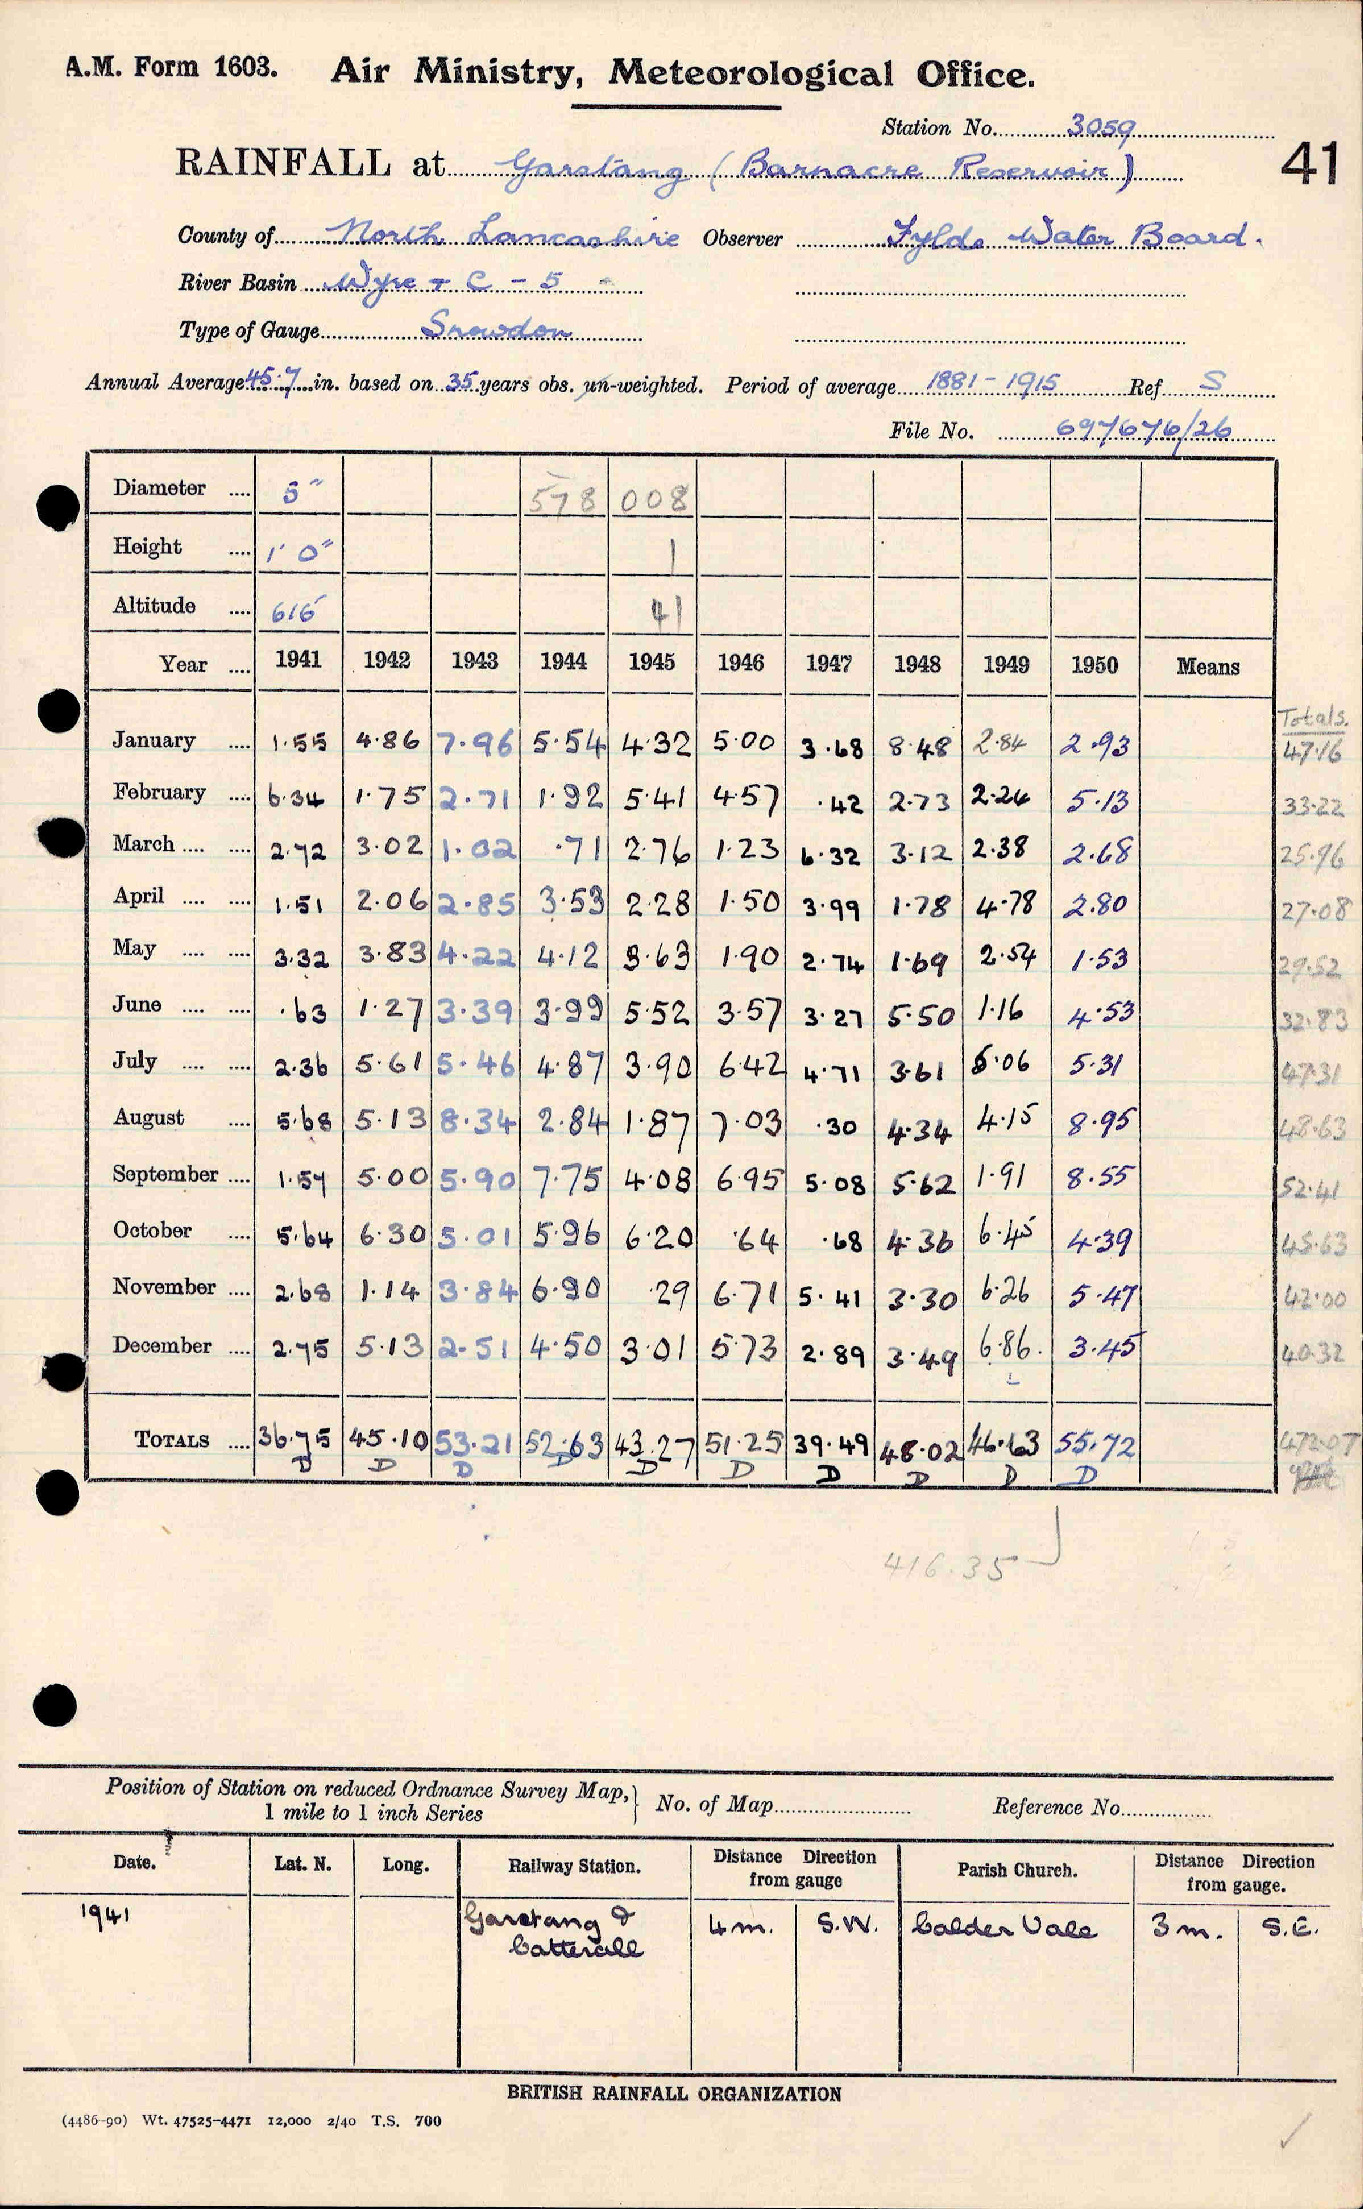 A.M. Form 1603. Air Ministry, Meteorological Office.
Station No. 3059
41
RAINFALL at Garstang (Barnacre Reservoir)
County of North Lancashire Observer Fylde Water Board.
River Basin Wyre + C - 5
Type of Gauge Snowdon
Annual Average 45.7 in. based on 35 years obs. un-weighted. Period of average 1881-1915 Ref S
File No. 697676/26
Diameter .... 5" 578 008
Height .... 1' 0" 1
Altitude .... 615 41
Year .... 1941 1942 1943 1944 1945 1946 1947 1948 1949 1950 Means
Totals.
January .... 1.55 4.86 7.96 5.54 4.32 5.00 3.68 8.48 2.84 2.93 47.16
February .... 6.34 1.75 2.71 1.92 5.41 4.57 .42 2.73 2.24 5.13 33.22
March .... .... 2.72 3.02 1.02 .71 2.76 1.23 6.32 3.12 2.38 2.68 25.96
April .... .... 1.51 2.06 2.85 3.53 2.28 1.50 3.99 1.78 4.78 2.80 27.08
May .... .... 3.32 3.83 4.22 4.12 3.63 1.90 2.74 1.69 2.54 1.53 29.52
June .... .... .63 1.27 3.39 3.99 5.52 3.57 3.27 5.50 1.16 4.53 32.83
July .... .... 2.36 5.61 5.46 4.87 3.90 6.42 4.71 3.61 5.06 5.31 47.31
August .... 5.68 5.13 8.34 2.84 1.87 7.03 .30 4.34 4.15 8.95 48.63
September .... 1.57 5.00 5.90 7.75 4.08 6.95 5.08 5.62 1.91 8.55 52.41
October .... 5.64 6.30 5.01 5.96 6.20 .64 .68 4.36 6.45 4.39 45.63
November .... 2.68 1.14 3.84 6.90 .29 6.71 5.41 3.30 6.26 5.47 42.00
December .... 2.75 5.13 2.51 4.50 3.01 5.73 2.89 3.49 6.86. 3.45 40.32
TOTALS .... 36.75 45.10 53.21 52.63 43.27 51.25 39.49 48.02 46.63 55.72 472.07
D D D D D D D D D D
416.35
Position of Station on reduced Ordnance Survey Map, 1 mile to 1 inch Series } No. of Map Reference No.
Date. Lat. N. Long. Railway Station. Distance Direction from gauge Parish Church. Distance Direction from gauge.
1941 Garstang & Catterall 4 m. S.W. Calder Vale 3 m. S.E.
BRITISH RAINFALL ORGANIZATION
(4486-90) Wt. 47525-4471 12,000 2/40 T.S. 700